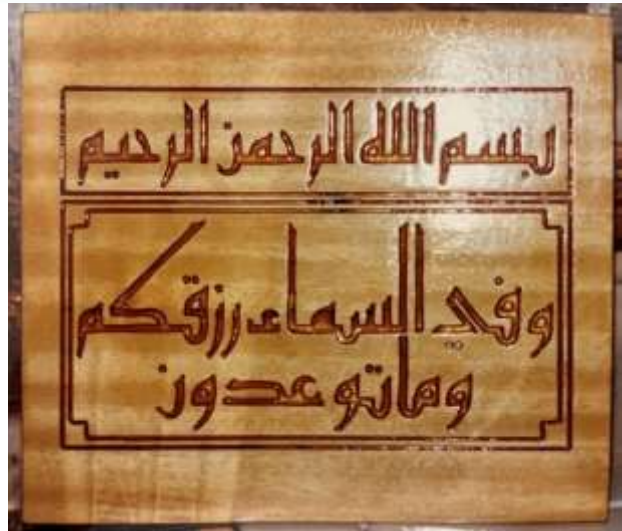 بسم الله الرحمن الرحيم
وفي السماء رزقكم
وما توعدون